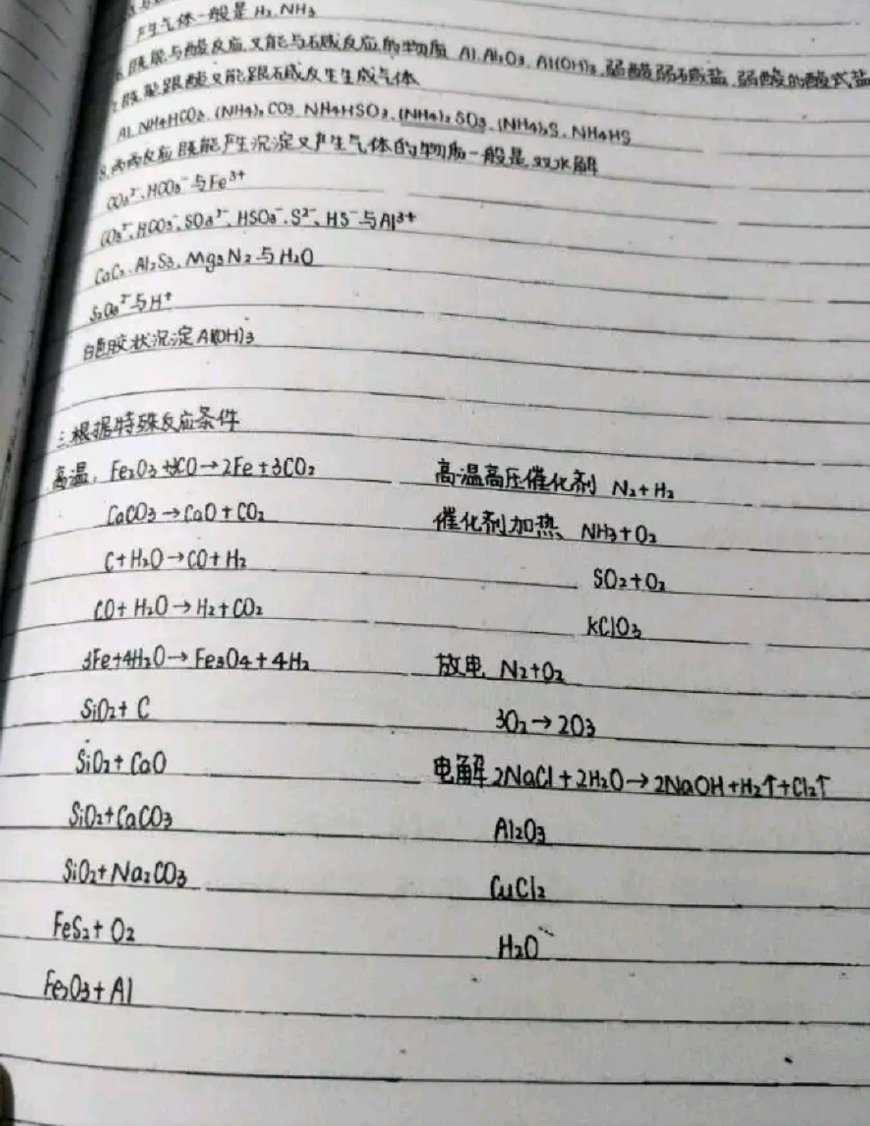 产生气体一般是 H₂. NH₃
6. 既能与酸反应又能与碱反应的物质 Al. Al₂O₃. Al(OH)₃. 弱酸弱碱盐. 弱酸的酸式盐
7. 既能跟酸又能跟碱反生生成气体
Al. NH₄HCO₃. (NH₄)₂CO₃. NH₄HSO₃. (NH₄)₂SO₃. (NH₄)₂S. NH₄HS
8. 两两反应既能产生沉淀又产生气体的物质一般是双水解
CO₃²⁻. HCO₃⁻与Fe³⁺
CO₃²⁻. HCO₃⁻. SO₃²⁻. HSO₃⁻. S²⁻. HS⁻与Al³⁺
CaC₂. Al₂S₃. Mg₃N₂与H₂O
S₂O₃²⁻与H⁺
白色胶状沉淀 Al(OH)₃
三.根据特殊反应条件
高温. Fe₂O₃+3CO→2Fe+3CO₂
CaCO₃→CaO+CO₂
C+H₂O→CO+H₂
CO+H₂O→H₂+CO₂
3Fe+4H₂O→Fe₃O₄+4H₂
SiO₂+C
SiO₂+CaO
SiO₂+CaCO₃
SiO₂+Na₂CO₃
FeS₂+O₂
Fe₂O₃+Al
高温高压催化剂 N₂+H₂
催化剂加热 NH₃+O₂
SO₂+O₂
KClO₃
放电 N₂+O₂
3O₂→2O₃
电解 2NaCl+2H₂O→2NaOH+H₂↑+Cl₂↑
Al₂O₃
CuCl₂
H₂O